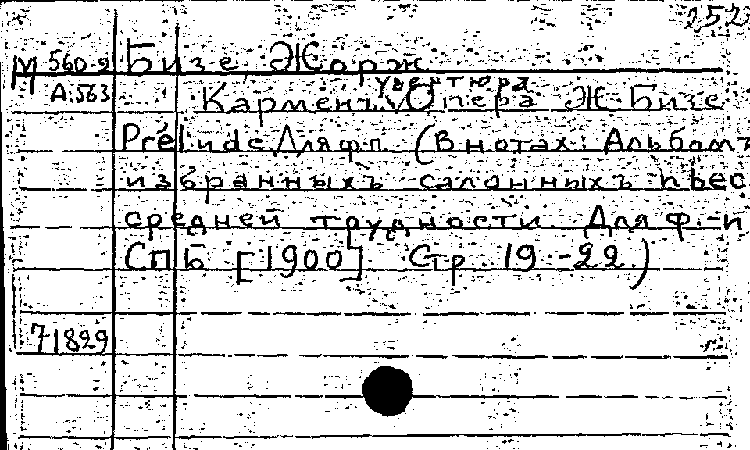 252
М 560-2 Бизе, Жорж
А.563 увертюра
Карменъ. V Опера Ж. Бизе
Prélude. Для фп. (В нотах: Альбомъ
избранныхъ салонныхъ пьес
средней трудности. Для ф.-п
СПБ [1900] Стр. 19-22.)
71829